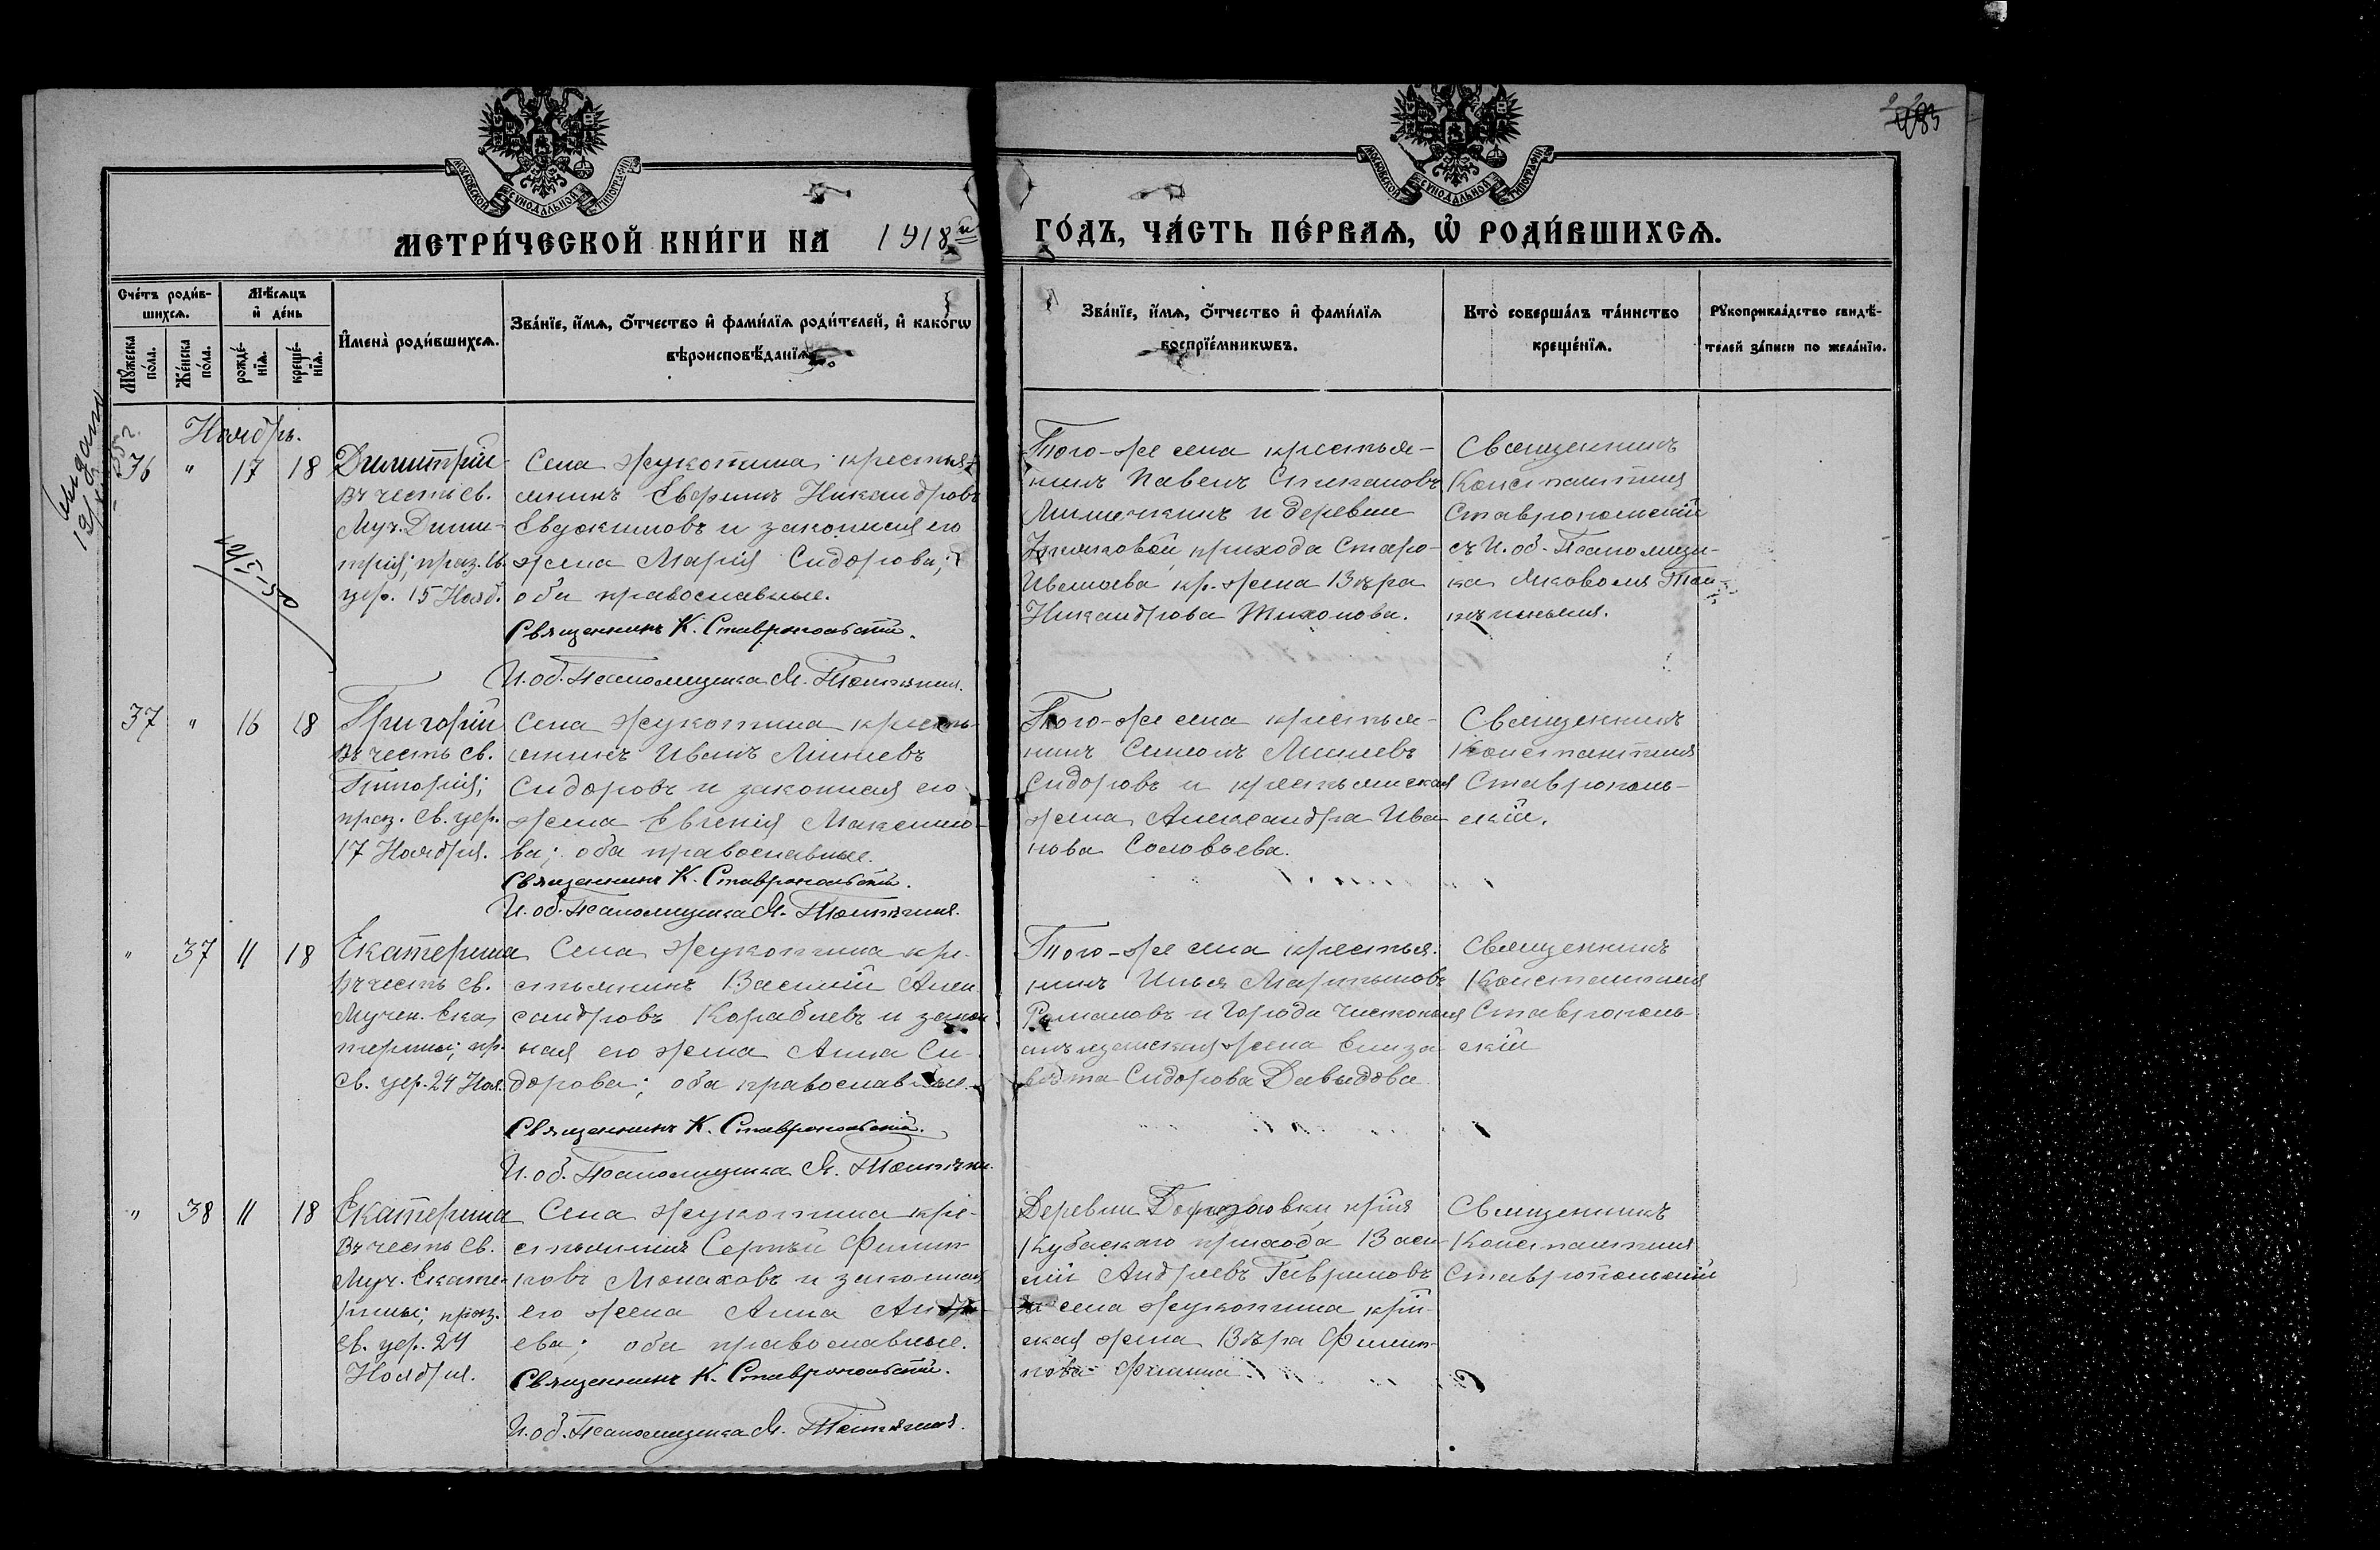 МОСКОВСКОЙ СѴНОДАЛЬНОЙ ТИПОГРАФІИ
МОСКОВСКОЙ СѴНОДАЛЬНОЙ ТИПОГРАФІИ
МЕТРИ́ЧЕСКОЙ КНИ́ГИ НА 1918й
ГО́ДЪ, ЧА́СТЬ ПЕ́РВАѦ, Ѡ҆ РОДИ́ВШИХСѦ.
Сче́тъ роди́в-
шихсѧ.
Мѣ́сѧцъ
и҆ де́нь
Мꙋ́жеска
по́ла.
Же́нска
по́ла.
рожде́-
нїѧ.
креще́-
нїѧ.
И҆мена̀ роди́вшихсѧ.
Зва́нїе, и҆́мѧ, ѻ҆́тчество и҆ фами́лїѧ роди́телей, и҆ како́гѡ
вѣроисповѣ́данїѧ.
Зва́нїе, и҆́мѧ, ѻ҆́тчество и҆ фами́лїѧ
воспрїе́мникѡвъ.
Кто̀ соверша́лъ та́инство
креще́нїѧ.
Рꙋкоприкла́дство свидѣ́-
телей за́писи по жела́нїю.
Ноябрь.
36 " 17 18
Димитрій
въ честь св.
Муч. Дими-
трія; праз. св.
цер. 15 Нояб.
Села Жукотина крестья-
янинъ Ефремъ Никандровъ
Евдокимовъ и законная его
жена Марія Сидорова;
оба православные.
Священникъ К. Ставропольскій.
И. об. Псаломщика Я.
Того-же села крестья-
нинъ Павелъ Степановъ
и деревни
прихода Старо-
Ивашева кр. жена Вѣра
Никандрова Тихонова.
Священникъ
Константинъ
Ставропольскій
съ И. об. Псаломщи-
ка Яковомъ
37 " 16 18
Григорій
въ честь св.
Григорія;
праз. св. цер.
17 Ноября.
Села Жукотина кресть-
янинъ Иванъ
Сидоровъ и законная его
жена Евгенія Максимо-
ва; оба православные.
Священникъ К. Ставропольскій.
И. об. Псаломщика Я.
Того-же села крестья-
нинъ
Сидоровъ и крестьянская
жена Александра Ива-
нова Соловьева.
Священникъ
Константинъ
Ставрополь-
скій.
" 37 11 18
Екатерина
въ честь св.
Мучен. Ека-
терины; пр.
св. цер. 24 Ноя.
Села Жукотина кре-
стьянинъ Василій Алек
сандровъ Кораблевъ и закон
ная его жена Анна Си-
дорова; оба православные.
Священникъ К. Ставропольскій.
И. об. Псаломщика Я.
Того-же села крестья-
нинъ Илья Мартыновъ
Романовъ и города Чистополя
мѣщанская жена Елиза-
вета Сидорова Давыдова
Священникъ
Константинъ
Ставрополь-
скій
" 38 11 18
Екатерина
въ честь св.
Муч. Екате-
рины; праз.
св. цер. 24
Ноября.
Села Жукотина кре-
стьянинъ Сергѣй Филип-
повъ Монаховъ и законная
его жена Анна Андре-
ева; оба православные.
Священникъ К. Ставропольскій.
И. об. Псаломщика Я.
Деревни
Кубаскаго прихода Васи-
лій Андреевъ Гавриловъ
и села Жукотина крій-
ская жена Вѣра Филип-
пова
Священникъ
Константинъ
Ставропольскій